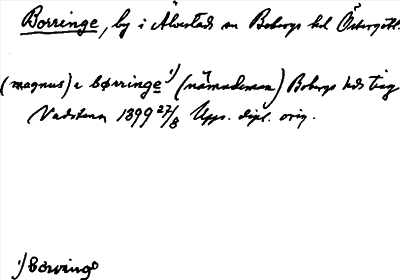 Borringe, by i Älvestads sn Bobergs hd Östergötl.
(magnus) e børringe ¹) (nämndeman) Bobergs hds ting
Vadstena 1399 27/8 Upps. dipl. orig.
¹) børringe